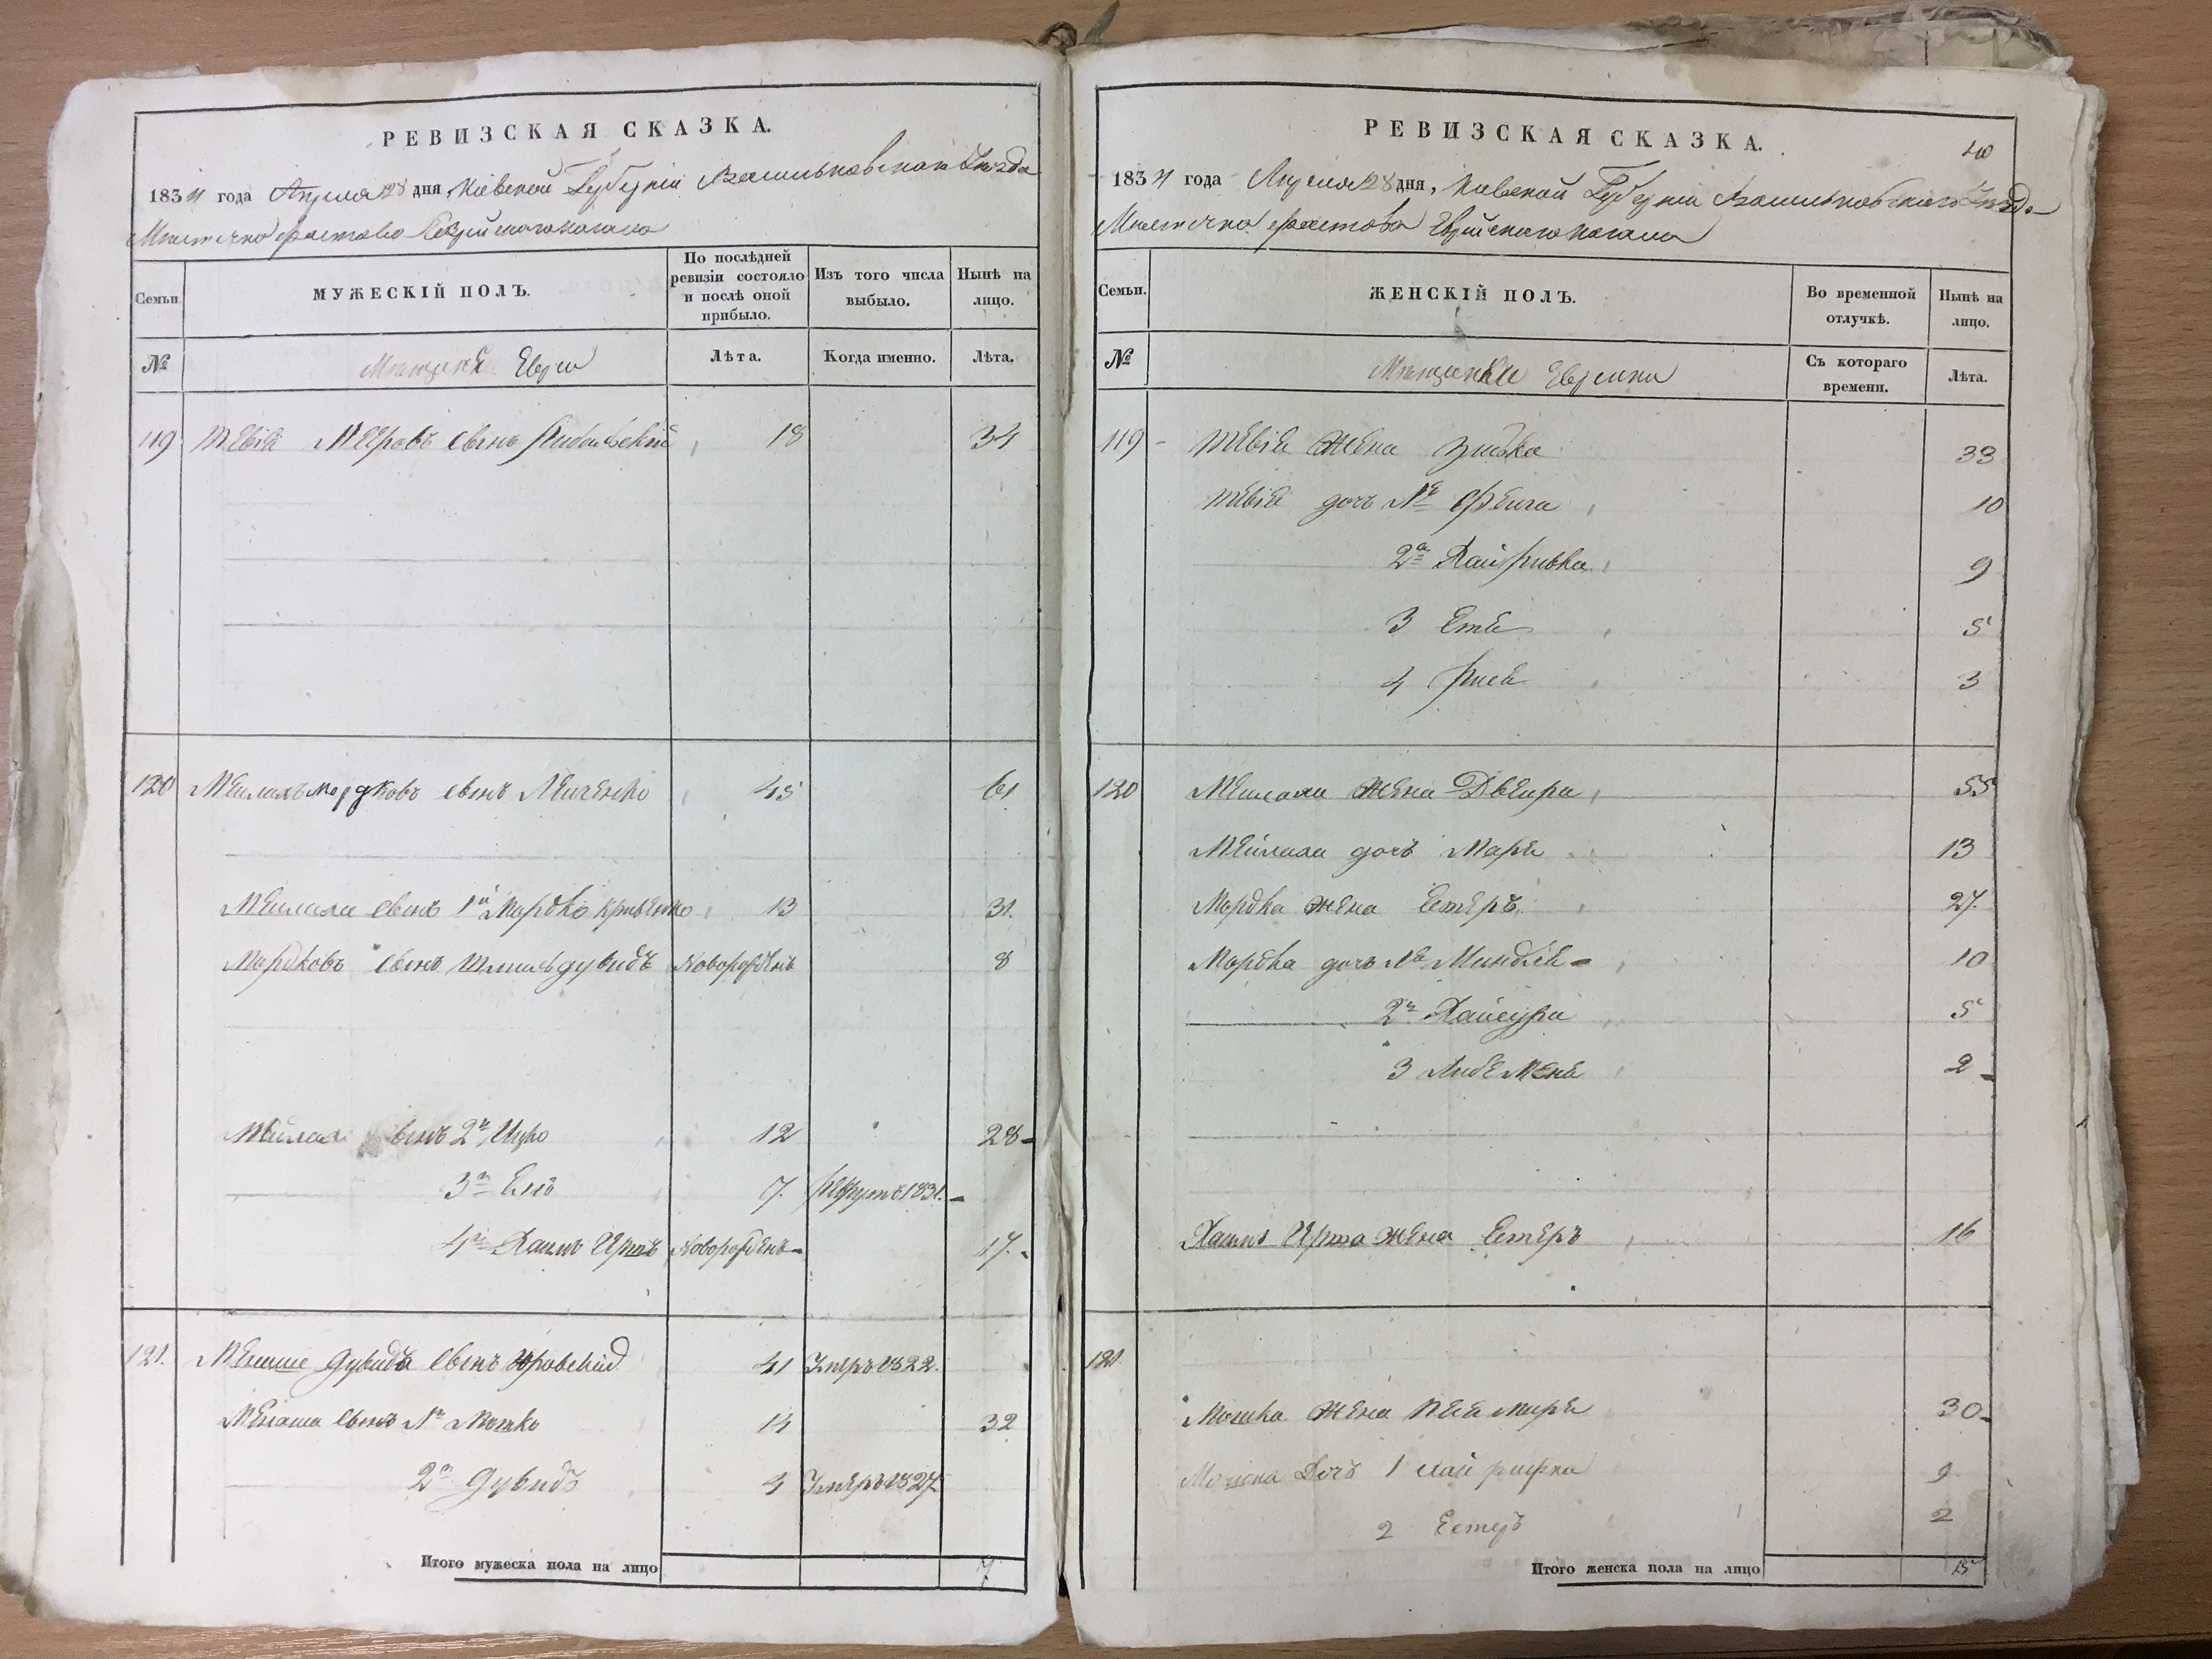 РЕВИЗСКАЯ СКАЗКА.
1834 года Апреля 28 дня, Киевской Губернiи Васильковскаго Уезда
Местечка Фастова Еврейскаго Кагала
Семьи.
МУЖЕСКIЙ ПОЛЪ.
По послѣдней ревизiи состояло и послѣ оной прибыло.
Изъ того числа выбыло.
Нынѣ на лицо.
№
Мещане Евреи
Лѣта.
Когда именно.
Лѣта.
119 Тевiя Меровъ сынъ 18 34
120 Мейлахъ Мордковъ сынъ 45 61
Мейлаха сынъ 1й Мордко 13 31.
Мордковъ сынъ Шмильдувидъ Новорожденъ 8
Мейлаха сынъ 2й Ицко 12 28
3й Ель 7. Рекрутъ 1831.
4й Хаимъ Новорожденъ 17.
121. Менаше Дувидъ сынъ 41 Умеръ 1822.
Менаша сынъ 1й Мошко 14 32
2й Дувидъ 4 Умеръ 1827
Итого мужеска пола на лицо 7
РЕВИЗСКАЯ СКАЗКА.
40
1834 года Апреля 28 дня, Киевской Губернiи Васильковскаго Уезда
Местечка Фастова Еврейскаго Кагала
Семьи.
ЖЕНСКIЙ ПОЛЪ.
Во временной отлучкѣ.
Нынѣ на лицо.
№
Мещанки Еврейки
Съ котораго времени.
Лѣта.
119 Тевiя жена Зиська 33
Тевiя дочъ 1я Фейга 10
2я Хайривка 9
3 Ете 5
4 Рися 3
120 Мейлаха жена Двейра 55
Мейлаха дочъ Маре 13
Мордка жена Естеръ 27.
Мордка дочъ 1я Миндля 10
2я Хайсура 5
3 2
Хаимъ жена Естеръ 16
121.
Мошка жена 30
Мошка Дочъ 1 Хай рифка 9
2 Естеръ 2
Итого женска пола на лицо 15